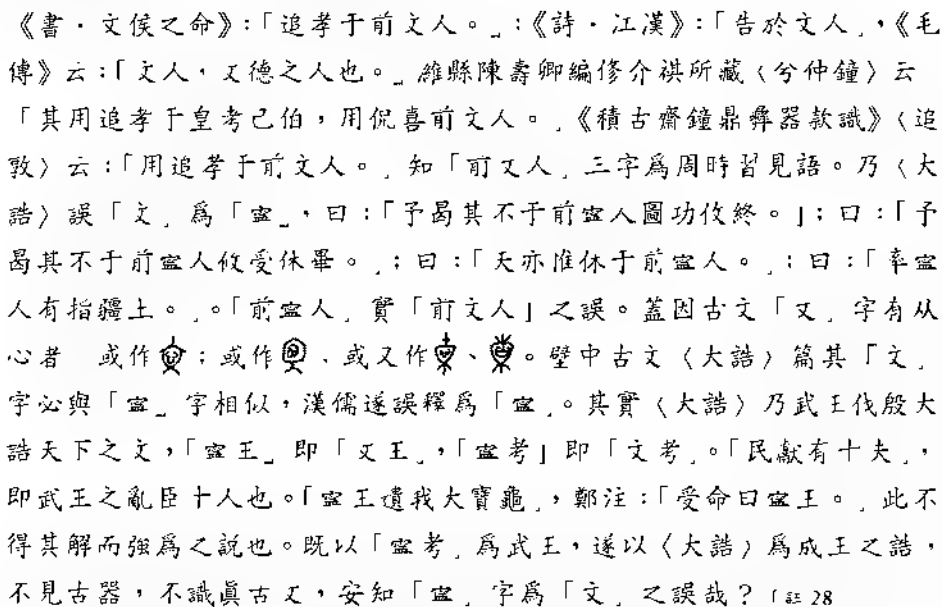 《書·文侯之命》:「追孝于前文人。」:《詩·江漢》:「告於文人」,《毛
傳》云:「文人,文德之人也。」濰縣陳壽卿編修介祺所藏〈兮仲鐘〉云
「其用追孝于皇考己伯,用侃喜前文人。」《積古齋鐘鼎彝器款識》〈追
敦〉云:「用追孝于前文人。」知「前文人」三字爲周時習見語。乃〈大
誥〉誤「文」爲「寍」,曰:「予曷其不于前寍人圖功攸終。」;曰:「予
曷其不于前寍人攸受休畢。」;曰:「天亦惟休于前寍人。」;曰:「率寍
人有指疆土。」。「前寍人」實「前文人」之誤。蓋因古文「文」字有从
心者 或作;或作、或又作、。壁中古文〈大誥〉篇其「文」
字必與「寍」字相似,漢儒遂誤釋爲「寍」。其實〈大誥〉乃武王伐殷大
誥天下之文,「寍王」即「文王」,「寍考」即「文考」。「民獻有十夫」,
即武王之亂臣十人也。「寍王遺我大寶龜」,鄭注:「受命曰寍王。」此不
得其解而強爲之說也。既以「寍考」爲武王,遂以〈大誥〉爲成王之誥,
不見古器,不識眞古文,安知「寍」字爲「文」之誤哉?「註28